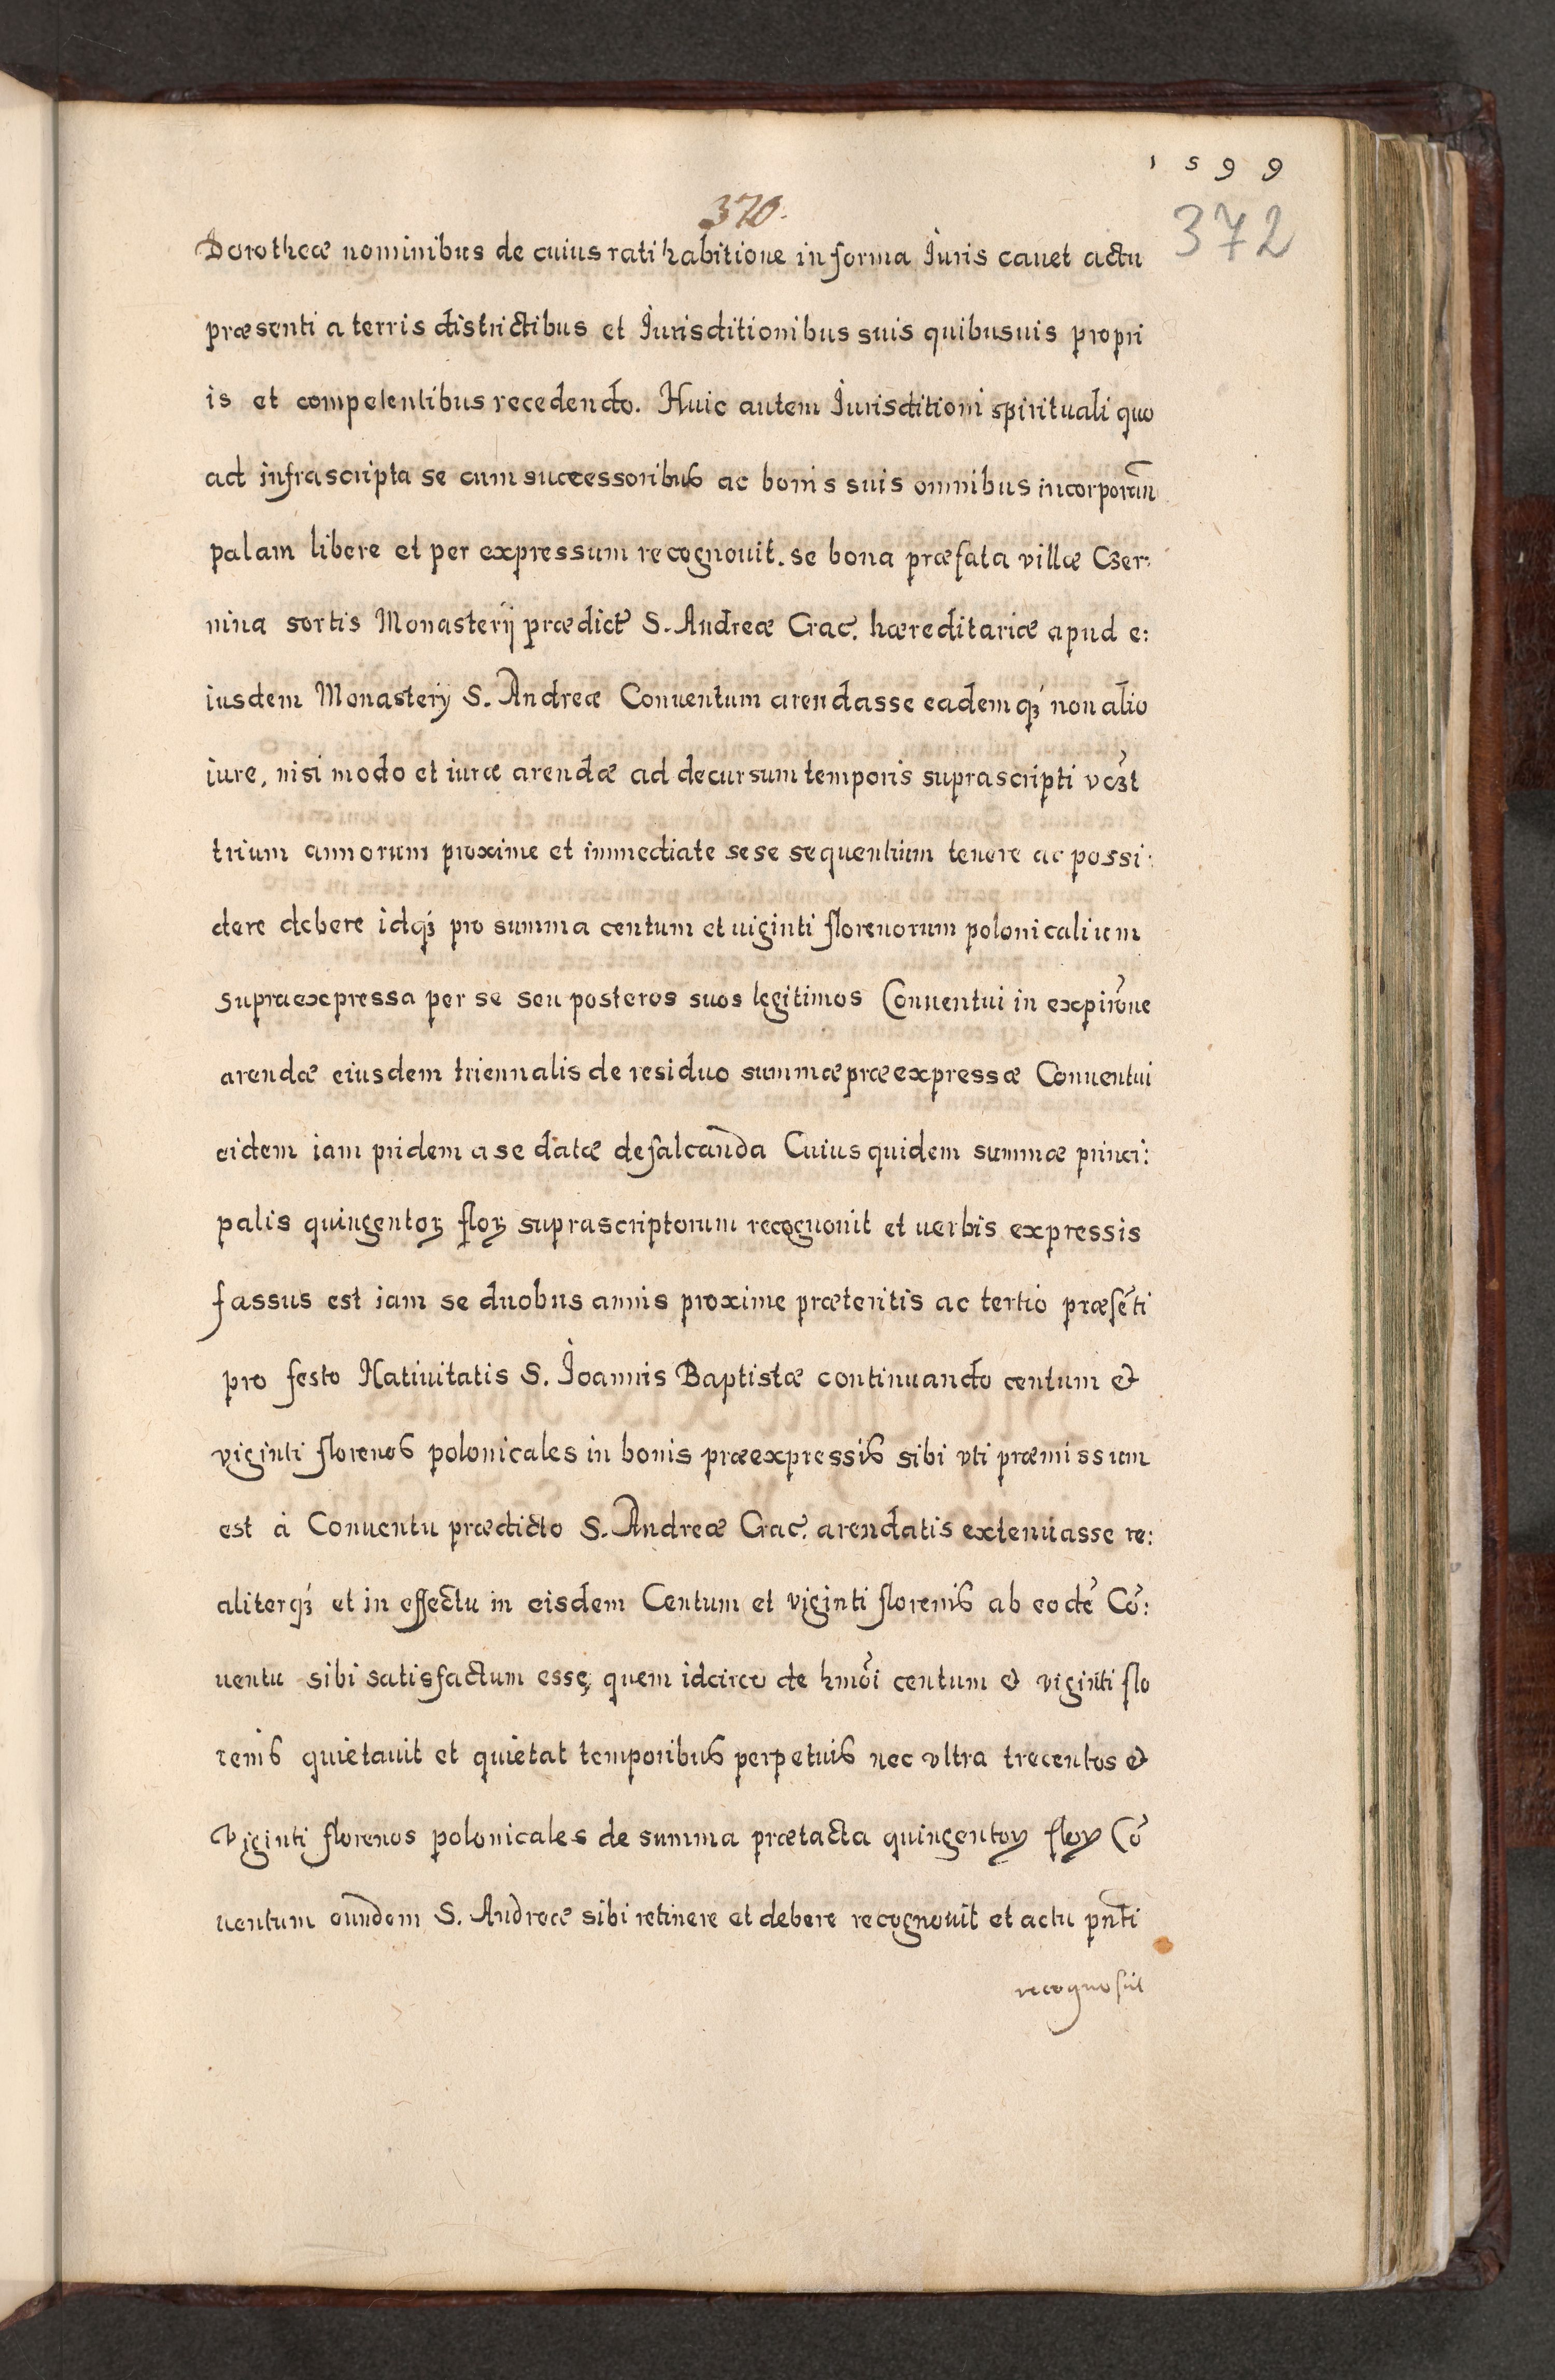 1599
370.
372
Dorotheæ nominibus de cuius rati habitione in forma Iuris cauet actu
præsenti a terris districtibus et Iurisditionibus suis quibusuis propri
is et competentibus recedendo. Huic autem Iurisditioni spirituali quo
ad infrascripta se cum successoribus ac bonis suis omnibus incorporañ
palam libere et per expressum recognouit. se bona præfata villæ Czer:
nina sortis Monasterij prædict̃ S. Andreæ Crac̃. hæreditariæ apud e:
iusdem Monastery S. Andreæ Conuentum arendasse eademq́ꝫ non alio
iure, nisi modo et iuræ arendæ ad decursum temporis suprascripti vcꝫ̃t
trium annorum proxime et immediate sese sequentium tenere ac possi:
dere debere idq́ꝫ pro summa centum et uiginti florenorum polonicalium
supraexpressa per se seu posteros suos legitimos Conuentui in expirõne
arendæ eiusdem triennalis de residuo summæ præexpressæ Conuentui
eidem iam pridem a se datæ defalcanda Cuius quidem summæ princi:
palis quingentoꝝ floꝝ suprascriptorum recognouit et uerbis expressis
fassus est iam se duobus annis proxime præteritis ac tertio præsẽti
pro festo Natiuitatis S. Ioannis Baptistæ continuando centum &
viginti florenos polonicales in bonis præexpressis sibi vti præmissum
est à Conuentu prædicto S. Andreæ Crac̃. arendatis extenuasse re:
aliterq́ꝫ et in effectu in eisdem Centum et viginti florenis ab eodẽ Cõ:
uentu sibi satisfactum esse, quem idcirco de hmõi centum & viginti flo
renis quietauit et quietat temporibus perpetuis nec vltra trecentos &
Viginti florenos polonicales de summa prætacta quingentoꝝ floꝝ Cõ
uentum eundem S. Andreæ sibi retinere et debere recognouit et actu pñti
recognoscit